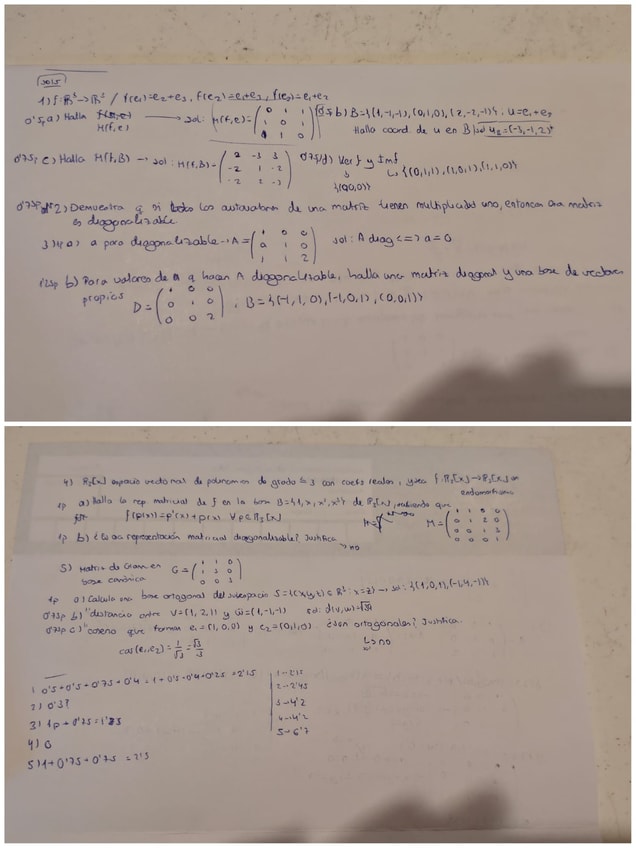 2015
1) f: R³→R³ / f(e₁)=e₂+e₃, f(e₂)=e₁+e₃, f(e₃)=e₁+e₂
0'5p a) Halla M(f,e) → sol: M(f,e)=(0 1 1 / 1 0 1 / 1 1 0) 0'5p b) B={(1,-1,-1),(0,1,0),(2,-2,-1)}, u=e₁+e₂
Halla coord. de u en B sol u_B=(-3,-1,2)
0'75p c) Halla M(f,B) → sol: M(f,B)=(2 -3 3 / -2 1 -2 / -2 2 -3) 0'75p d) Ker f y Imf
{(0,0,0)} {(0,1,1),(1,0,1),(1,1,0)}
0'75p 2) Demuestra q si todos los autovalores de una matriz tienen multiplicidad uno, entonces esa matriz
es diagonalizable.
3) a) a para diagonalizable → A=(1 0 0 / a 1 0 / 1 1 2) sol: A diag <=> a=0
1'25p b) Para valores de a q hacen A diagonalizable, halla una matriz diagonal y una base de vectores
propios D=(1 0 0 / 0 1 0 / 0 0 2), B={(-1,1,0),(-1,0,1),(0,0,1)}
4) R₃[x] espacio vectorial de polinomios de grado ≤ 3 con coefs reales, y sea f: R₃[x]→R₃[x] un
endomorfismo
1p a) Halla la rep matricial de f en la base B={1,x,x²,x³} de R₃[x], sabiendo que
f(p(x))=p'(x)+p(x) ∀p∈R₃[x] M=(1 1 0 0 / 0 1 2 0 / 0 0 1 3 / 0 0 0 1)
1p b) ¿Es esa representación matricial diagonalizable? Justifica
→ no
5) Matriz de Gram en base canónica G=(1 1 0 / 1 3 0 / 0 0 3)
1p a) Calcula una base ortogonal del subespacio S={(x,y,z)∈R³: x=z} → sol: {(1,0,1),(-1,4,-1)}
0'75p b) "distancia entre V=(1,2,1) y w=(1,-1,-1) sol: d(v,w)=√39
0'75p c) "coseno que forman e₁=(1,0,0) y e₂=(0,1,0). ¿Son ortogonales? Justifica
cos(e₁,e₂)=1/√3=√3/3 → no
1) 0'5+0'5+0'75+0'4=1+0'5+0'4+0'25=2'15
2) 0'3?
3) 1p+0'25=1'25
4) 0
5) 1+0'75+0'75=2'5
1→2'15
2→2'45
3→4'2
4→4'2
5→6'7